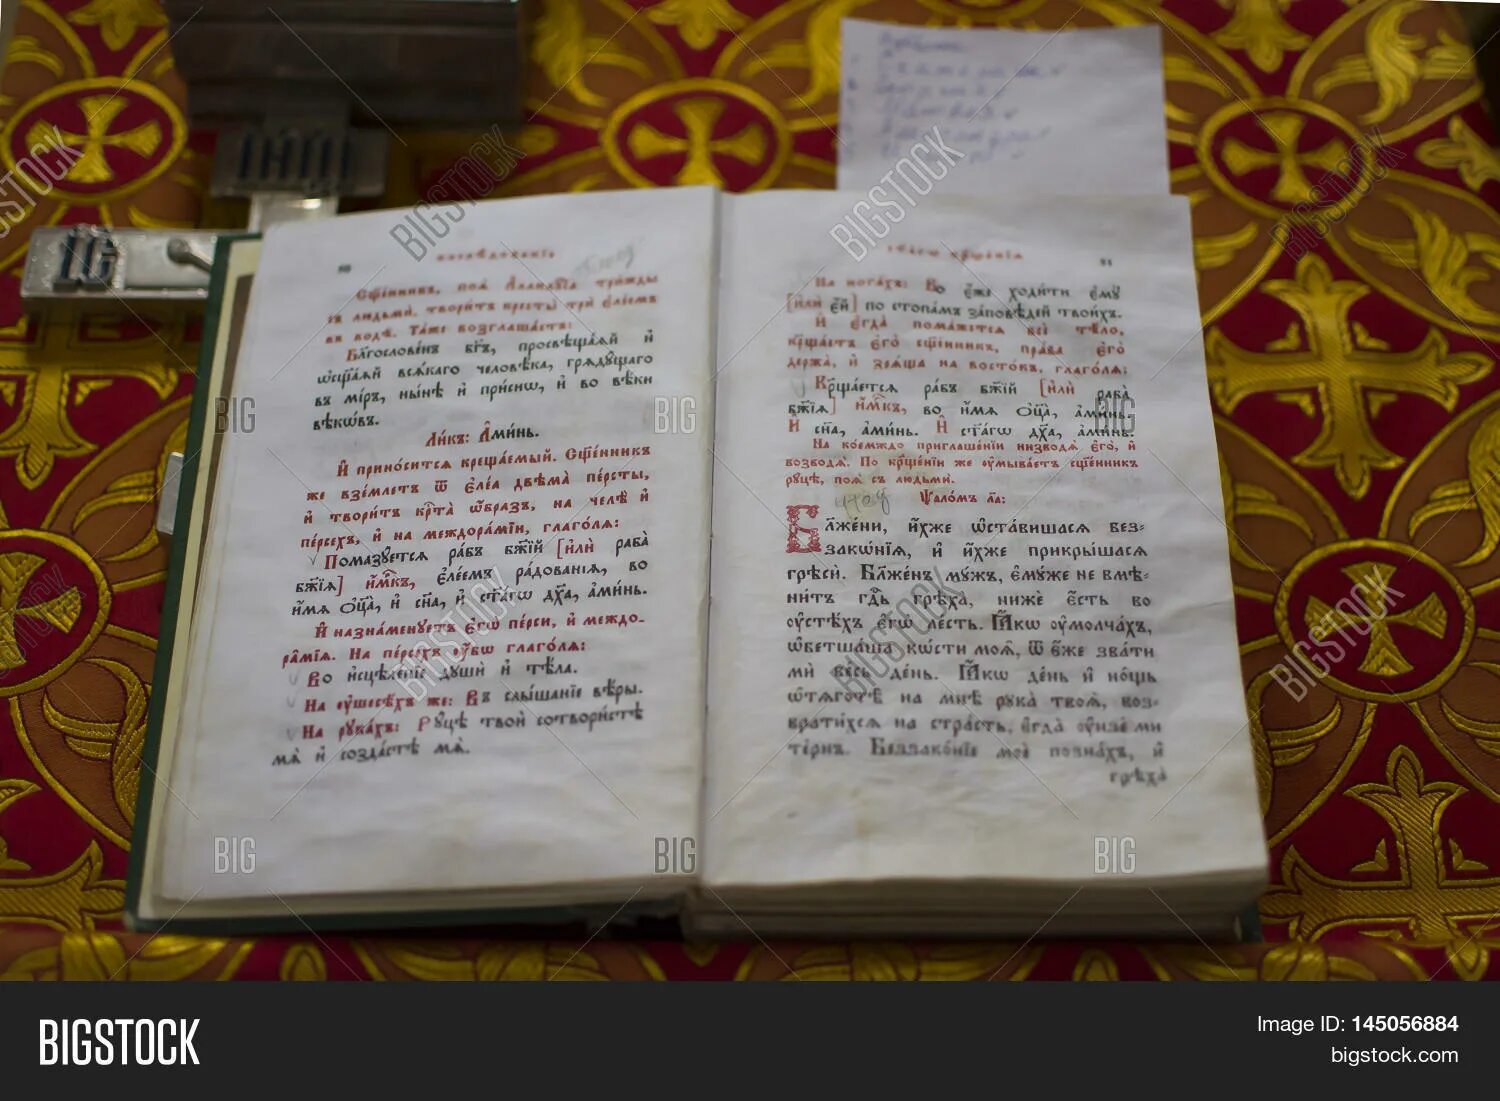 ІНЦІ
ІС
Сщ҃е́нникъ, поѧ̀ А҆ллилꙋ́їа три́жды
съ людьмѝ, твори́тъ кресты̀ трѝ є҆ле́емъ
въ водѣ̀. Та́же возглаша́етъ:
Блгⷭ҇ове́нъ бг҃ъ, просвѣща́ѧй и҆
ѡ҆сщ҃а́ѧй всѧ́каго человѣ́ка, грѧдꙋ́щаго
въ мі́ръ, ны́нѣ и҆ при́снѡ, и҆ во вѣ́ки
вѣкѡ́въ.
Ли́къ: А҆ми́нь.
И҆ прино́ситсѧ креща́емый. Сщ҃е́нникъ
же взе́млетъ ѿ є҆ле́а двѣма̀ пе́рсты,
и҆ твори́тъ крⷭ҇та̀ ѡ҆́бразъ, на челѣ̀ и҆
пе́рсехъ, и҆ на междора́міи, глаго́лѧ:
Помазꙋ́етсѧ ра́бъ бж҃їй [и҆лѝ раба̀
бж҃їѧ] и҆́м҃къ, є҆ле́емъ ра́дованїѧ, во
и҆́мѧ ѻ҆ц҃а̀, и҆ сн҃а, и҆ ст҃а́гѡ дх҃а, а҆ми́нь.
И҆ назна́менꙋетъ є҆гѡ̀ пе́рси, и҆ междо-
ра́мїѧ. На пе́рсехъ ᲂу҆́бѡ глаго́лѧ:
Во и҆сцѣле́нїе дꙋшѝ и҆ тѣ́ла.
На ᲂу҆шесѣ́хъ же: Въ слы́шанїе вѣ́ры.
На рꙋка́хъ: Рꙋ́цѣ твоѝ сотвори́стѣ
мѧ̀ и҆ созда́стѣ мѧ̀.
На нога́хъ: Во є҆́же ходи́ти є҆мꙋ̀
[и҆лѝ є҆́й] по стопа́мъ за́повѣдей твои́хъ.
И҆ є҆гда̀ пома́жетсѧ всѐ тѣ́ло,
крⷭ҇ща́етъ є҆го̀ сщ҃е́нникъ, пра́ва є҆го̀
держа̀, и҆ зрѧ́ща на восто́къ, глаго́лѧ:
Крⷭ҇ща́етсѧ ра́бъ бж҃їй [и҆лѝ раба̀
бж҃їѧ] и҆́м҃къ, во и҆́мѧ ѻ҆ц҃а̀, а҆ми́нь.
И҆ сн҃а, а҆ми́нь. И҆ ст҃а́гѡ дх҃а, а҆ми́нь.
На коемждо приглаше́нїи низводѧ̀ є҆го̀, и҆
возводѧ̀. По крⷭ҇ще́нїи же ᲂу҆мыва́етъ сщ҃е́нникъ
рꙋ́цѣ, поѧ̀ съ людьмѝ.
Ѱало́мъ л҃а:
Бл҃же́ни, и҆̀хже ѡ҆ста́вишасѧ без-
закѡ́нїѧ, и҆ и҆̀хже прикры́шасѧ
грѣсѝ. Бл҃же́нъ мꙋ́жъ, є҆мꙋ́же не вмѣ-
ни́тъ гдⷭ҇ь грѣха̀, нижѐ є҆́сть во
ᲂу҆стѣ́хъ є҆гѡ̀ ле́сть. Ꙗ҆́кѡ ᲂу҆молча́хъ,
ѡ҆бетша́ша кѡ́сти моѧ̑, ѿ є҆́же зва́ти
мѝ ве́сь де́нь. Ꙗ҆́кѡ де́нь и҆ но́щь
ѡ҆тѧготѣ̀ на мнѣ̀ рꙋка̀ твоѧ̀, воз-
врати́хсѧ на стра́сть, є҆гда̀ ᲂу҆нзе́ ми
те́рнъ. Беззако́нїе моѐ позна́хъ, и҆
грѣха̀
BIGSTOCK
Image ID: 145056884
bigstock.com